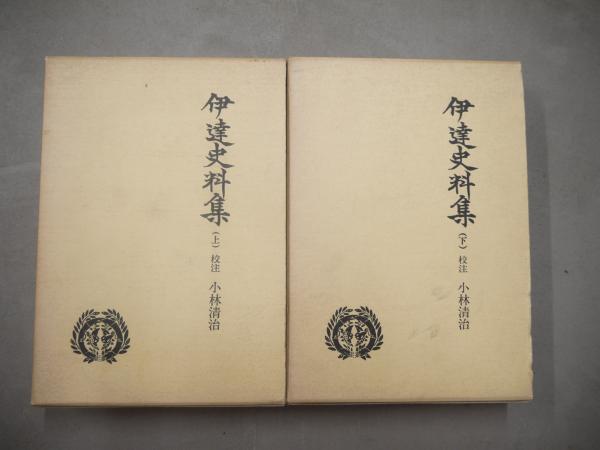 伊達史料集
(上) 校注 小林清治
伊達史料集
(下) 校注 小林清治